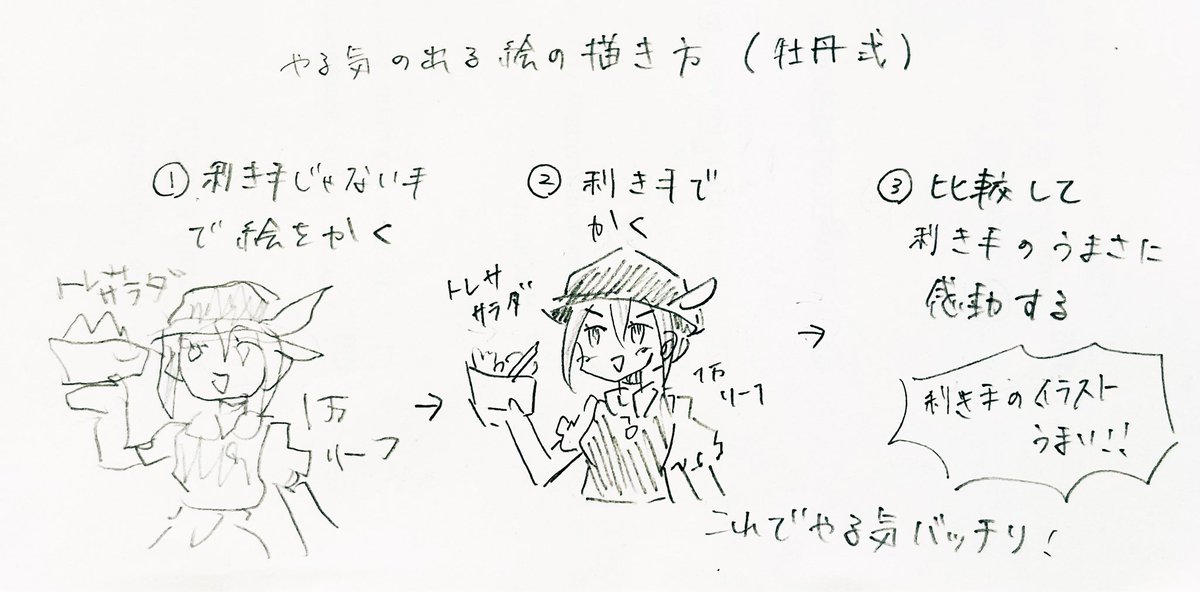 やる気の出る絵の描き方(牡丹式)
①利き手じゃない手
で絵をかく
トレササラダ
1万
リーフ
→
②利き手で
かく
トレサ
サラダ
1万
リーフ
→
③比較して
利き手のうまさに
感動する
利き手のイラスト
うまい!!
これでやる気バッチリ!